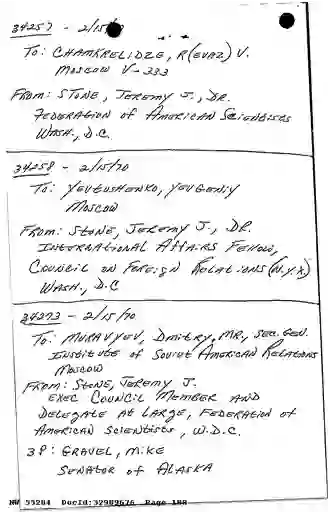 34257 - 2/15/70
To: CHAMKRELIDZE, R(EVAZ) V.
MOSCOW V-333
FROM: STONE, JEREMY J., DR.
FEDERATION OF AMERICAN SCIENTISTS
WASH., D.C.
34258 - 2/15/70
To: YEVTUSHENKO, YEVGENIY
MOSCOW
FROM: STONE, JEREMY J., DR.
INTERNATIONAL AFFAIRS FELLOW,
COUNCIL ON FOREIGN RELATIONS (N.Y.K)
WASH., D.C
34273 - 2/15/70
To: MURAVYEV, DMITRY, MR., SEC. GEN.
INSTITUTE OF SOVIET AMERICAN RELATIONS
MOSCOW
FROM: STONE, JEREMY J.
EXEC COUNCIL MEMBER AND
DELEGATE AT LARGE, FEDERATION OF
AMERICAN SCIENTISTS, W.D.C.
3P: GRAVEL, MIKE
SENATOR OF ALASKA
NW 55284 DocId:32989676 Page 188